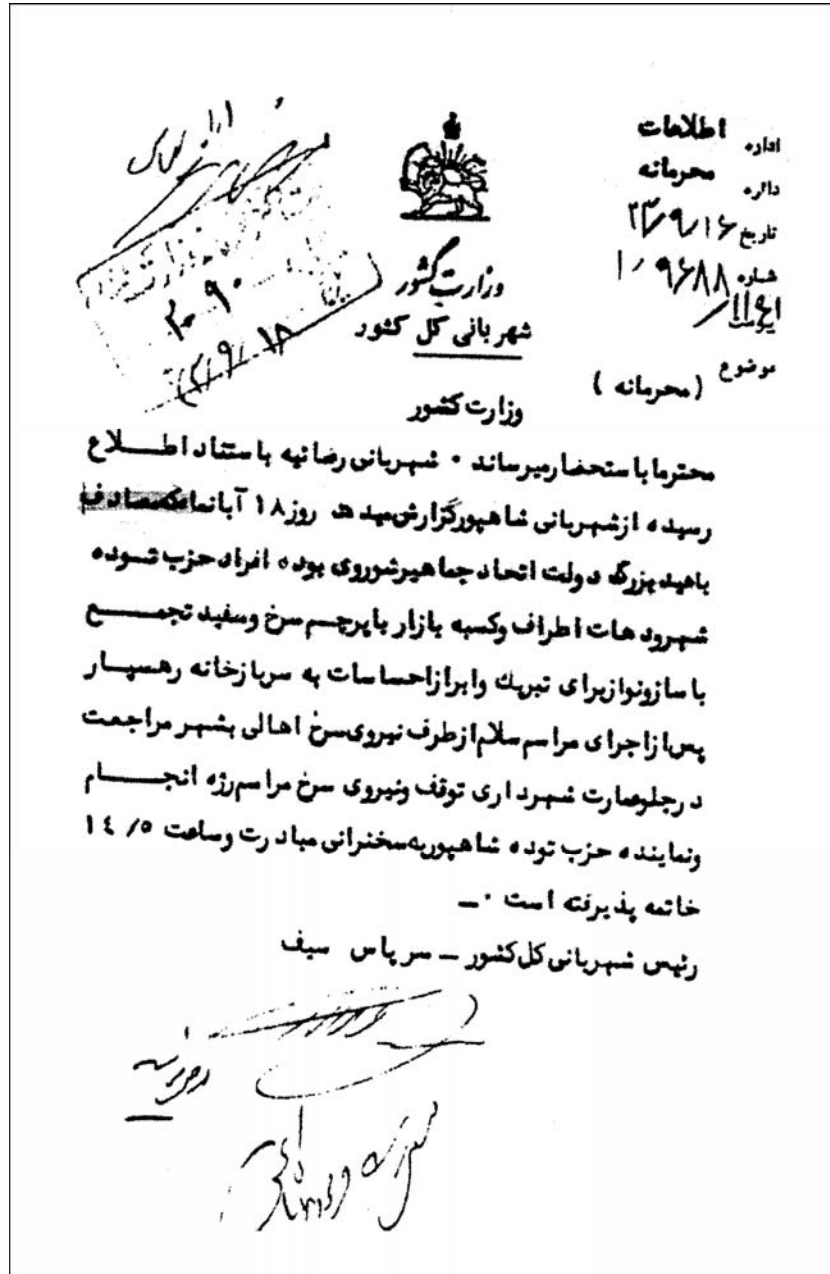 اداره اطلاعات
دائره محرمانه
تاریخ ۲۳/۹/۱۶
شماره ۹۶۸۸/۱
پیوست
موضوع (محرمانه)
وزارت کشور
شهربانی کل کشور
۳۰۹۰
وزارت کشور
محترما باستحضار میرساند ۰ شهربانی رضائیه باستناد اطــلاع
رسیده ازشهربانی شاهپورگزارش میدهد روز ۱۸ آبانماه که مصادف
باعید بزرگ دولت اتحاد جماهیرشوروی بوده افراد حزب تـوده
شهرودهات اطراف وکسبه بازار باپرچـم سرخ وسفید تجمــع
با سازونوازبرای تبریك وابرازاحساسات به سربازخانه رهسپـار
پس ازاجرای مراسم سلام ازطرف نیروی سرخ اهالی بشهـر مراجعت
درجلوعمارت شهـرداری توقف ونیروی سرخ مراسم رژه انجــام
ونماینده حزب توده شاهپوربه سخنرانی مبادرت وساعت ۱۴/۵
خاتمه پذیرفته است ۰ــ
رئیس شهربانی کل کشور ــ سرپاس سیف